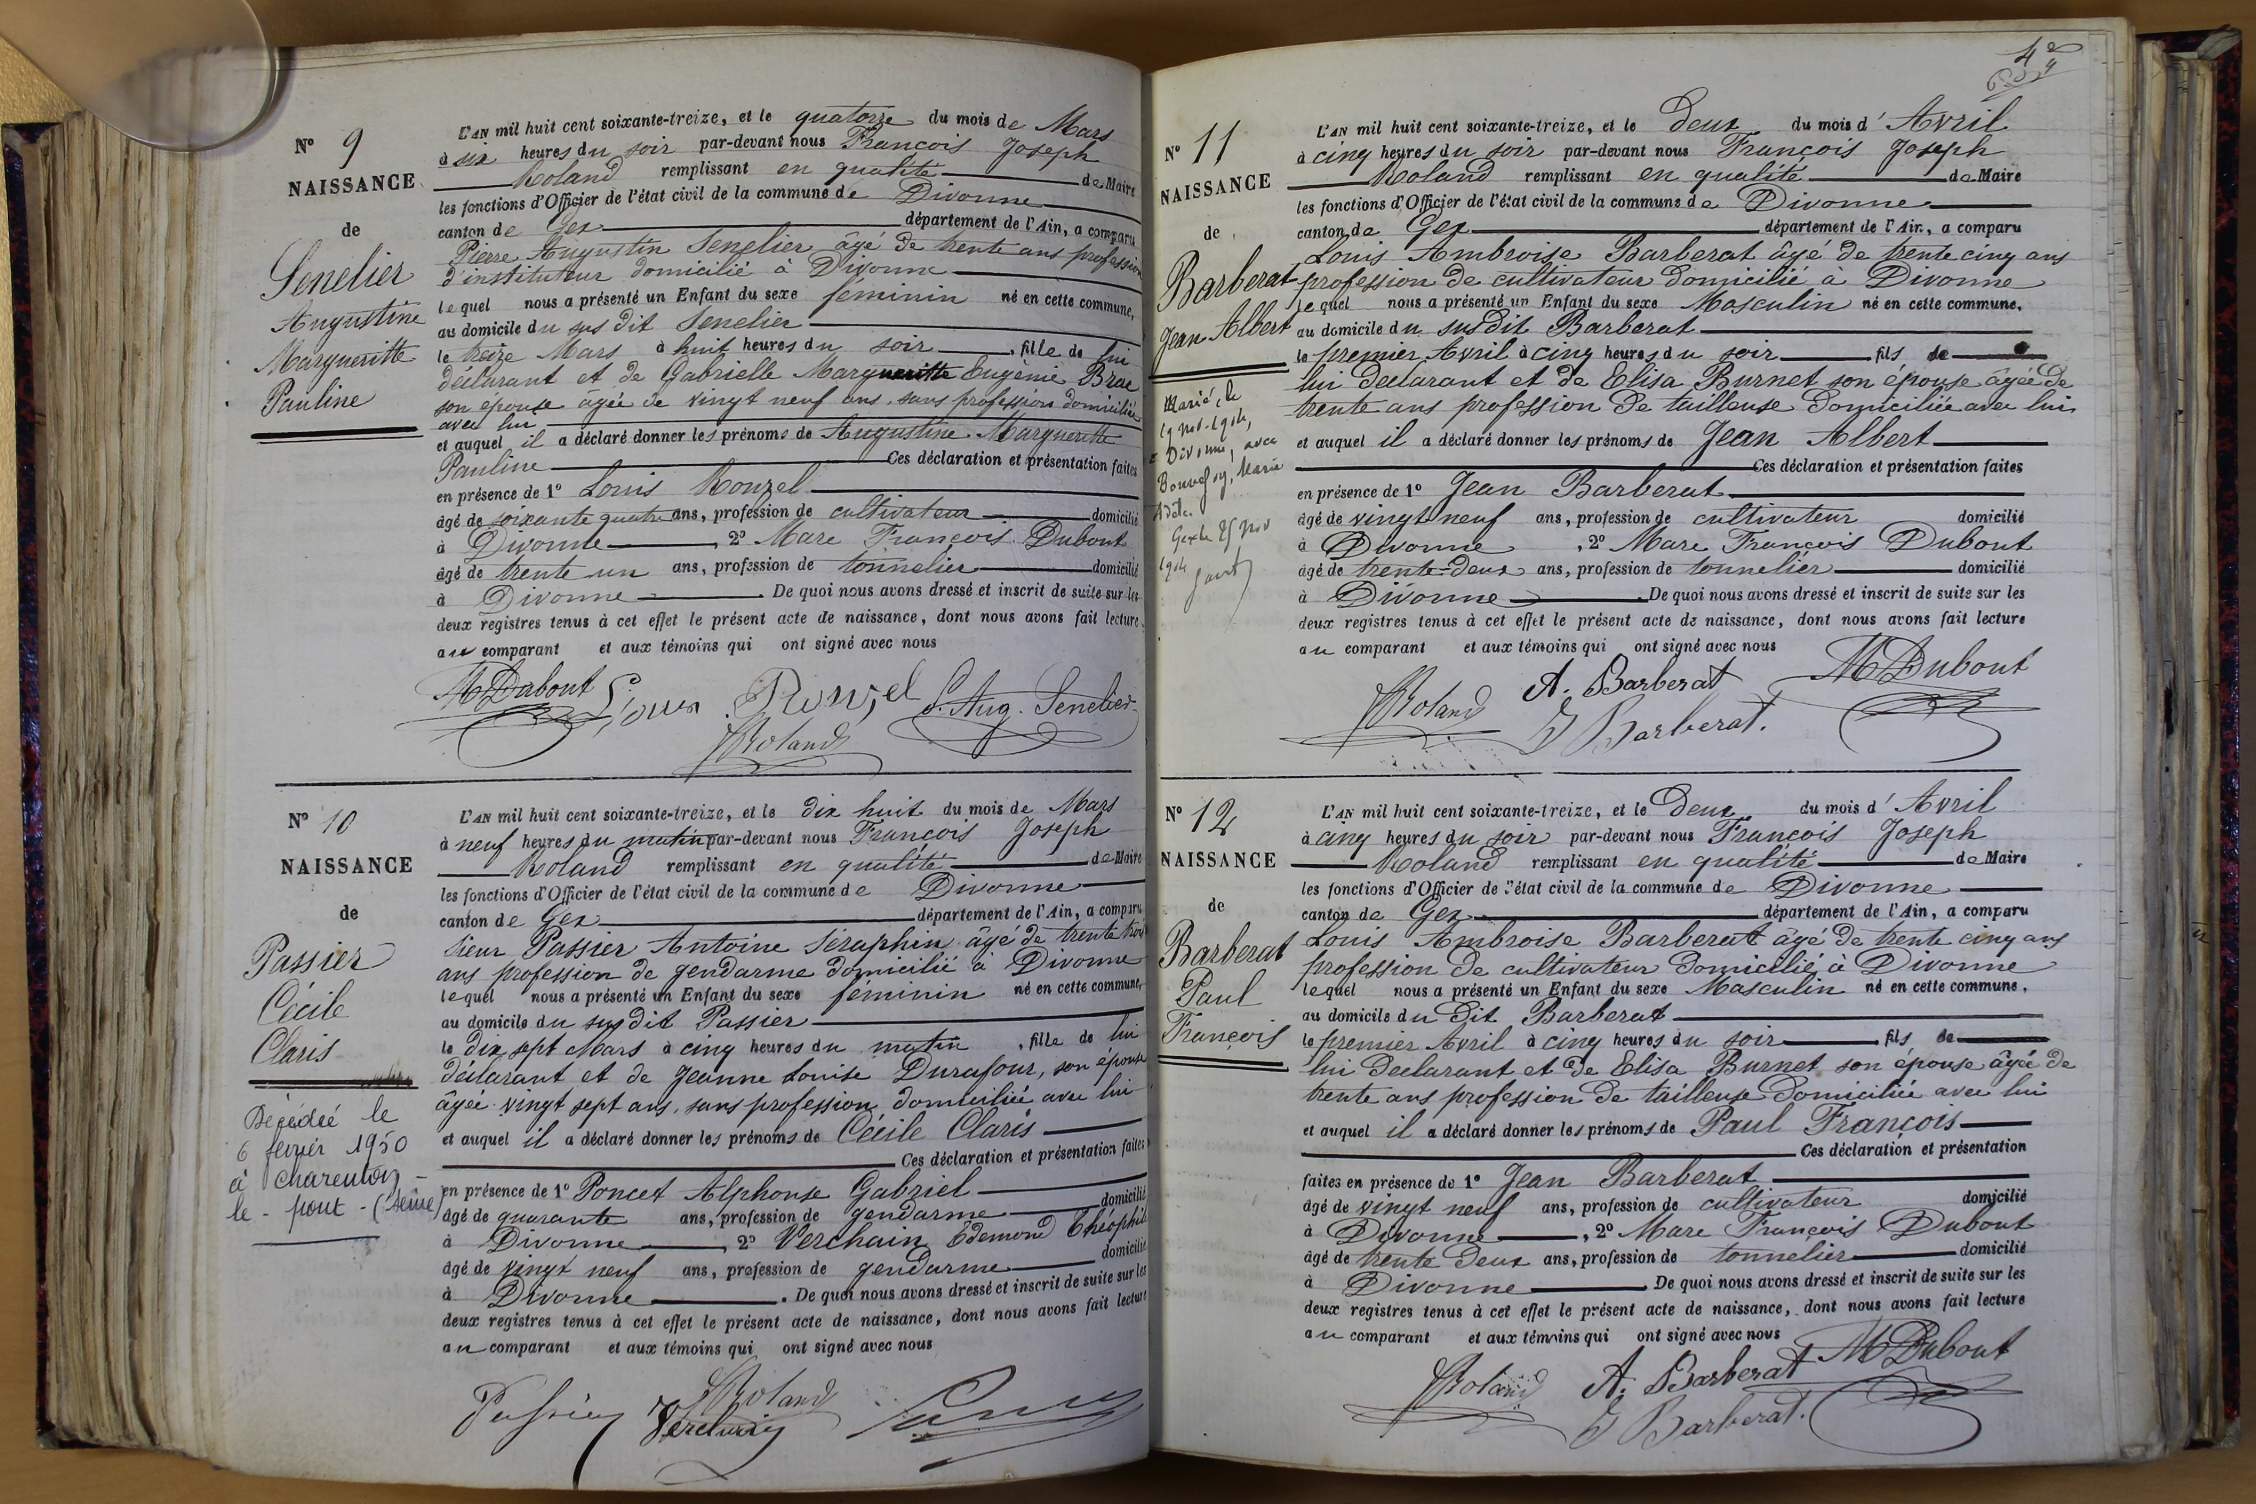 N° 9
NAISSANCE
de
Senelier
Augustine
Margueritte
Pauline
L'AN mil huit cent soixante-treize, et le quatorze du mois de Mars
à six heures du soir par-devant nous François Joseph
Roland remplissant en qualité de Maire
les fonctions d'Officier de l'état civil de la commune de Divonne
canton de Gex département de l'Ain, a comparu
Pierre Augustin Senelier âgé de trente ans profession
d'instituteur domicilié à Divonne
lequel nous a présenté un Enfant du sexe féminin né en cette commune,
au domicile du sus dit Senelier
le treize Mars à huit heures du soir, fille de lui
déclarant et de Gabrielle Margueritte Eugénie Brae
son épouse agée de vingt neuf ans, sans profession domiciliée
avec lui
et auquel il a déclaré donner les prénoms de Augustine Margueritte
Pauline Ces déclaration et présentation faites
en présence de 1° Louis Ronzel
âgé de soixante quatre ans, profession de cultivateur domicilié
à Divonne, 2° Marc François Dubout
âgé de trente un ans, profession de tonnelier domicilié
à Divonne. De quoi nous avons dressé et inscrit de suite sur les
deux registres tenus à cet effet le présent acte de naissance, dont nous avons fait lecture
au comparant et aux témoins qui ont signé avec nous
M Dubout Louis Ronzel P. Aug. Senelier
JRoland
N° 10
NAISSANCE
de
Passier
Cécile
Claris
Décédée le
6 février 1950
à Charenton
le - pont - (Seine)
L'AN mil huit cent soixante-treize, et le dix huit du mois de Mars
à neuf heures du matin par-devant nous François Joseph
Roland remplissant en qualité de Maire
les fonctions d'Officier de l'état civil de la commune de Divonne
canton de Gex département de l'Ain, a comparu
Sieur Passier Antoine Séraphin âgé de trente trois
ans profession de gendarme domicilié à Divonne
lequel nous a présenté un Enfant du sexe féminin né en cette commune,
au domicile du sus dit Passier
le dix sept Mars à cinq heures du matin, fille de lui
déclarant et de Jeanne Louise Durafour, son épouse
âgée vingt sept ans, sans profession domiciliée avec lui
et auquel il a déclaré donner les prénoms de Cécile Claris
Ces déclaration et présentation faites
en présence de 1° Poncet Alphonse Gabriel
âgé de quarante ans, profession de gendarme domicilié
à Divonne 2° Verchain Edemond Théophile
âgé de vingt neuf ans, profession de gendarme domicilié
à Divonne. De quoi nous avons dressé et inscrit de suite sur les
deux registres tenus à cet effet le présent acte de naissance, dont nous avons fait lecture
au comparant et aux témoins qui ont signé avec nous
Passier JRoland
Verchain
4
N° 11
NAISSANCE
de
Barberat
Jean Albert
Marié, le
19 nov. 1904,
à Divonne, avec
Marie
Adèle.
Gex le 25 Nov
1904
L'AN mil huit cent soixante-treize, et le Deux du mois d'Avril
à cinq heures du soir par-devant nous François Joseph
Roland remplissant en qualité de Maire
les fonctions d'Officier de l'état civil de la commune de Divonne
canton de Gex département de l'Ain, a comparu
Louis Ambroise Barberat âgé de trente cinq ans
profession de cultivateur domicilié à Divonne
lequel nous a présenté un Enfant du sexe Masculin né en cette commune,
au domicile du susdit Barberat
le premier Avril à cinq heures du soir fils de
lui déclarant et de Elisa Burnet son épouse âgée de
trente ans profession de tailleuse domiciliée avec lui
et auquel il a déclaré donner les prénoms de Jean Albert
Ces déclaration et présentation faites
en présence de 1° Jean Barberat
âgé de vingt neuf ans, profession de cultivateur domicilié
à Divonne, 2° Marc François Dubout
âgé de trente-deux ans, profession de tonnelier domicilié
à Divonne. De quoi nous avons dressé et inscrit de suite sur les
deux registres tenus à cet effet le présent acte de naissance, dont nous avons fait lecture
au comparant et aux témoins qui ont signé avec nous
JRoland A. Barberat M Dubout
J Barberat.
N° 12
NAISSANCE
de
Barberat
Paul
François
L'AN mil huit cent soixante-treize, et le Deux du mois d'Avril
à cinq heures du soir par-devant nous François Joseph
Roland remplissant en qualité de Maire
les fonctions d'Officier de l'état civil de la commune de Divonne
canton de Gex département de l'Ain, a comparu
Louis Ambroise Barberat âgé de trente cinq ans
profession de cultivateur domicilié à Divonne
lequel nous a présenté un Enfant du sexe Masculin né en cette commune,
au domicile du dit Barberat
le premier Avril à cinq heures du soir fils de
lui déclarant et de Elisa Burnet son épouse âgée de
trente ans profession de tailleuse domiciliée avec lui
et auquel il a déclaré donner les prénoms de Paul François
Ces déclaration et présentation
faites en présence de 1° Jean Barberat
âgé de vingt neuf ans, profession de cultivateur domicilié
à Divonne, 2° Marc François Dubout
âgé de trente deux ans, profession de tonnelier domicilié
à Divonne. De quoi nous avons dressé et inscrit de suite sur les
deux registres tenus à cet effet le présent acte de naissance, dont nous avons fait lecture
au comparant et aux témoins qui ont signé avec nous
JRoland A. Barberat M Dubout
J Barberat.